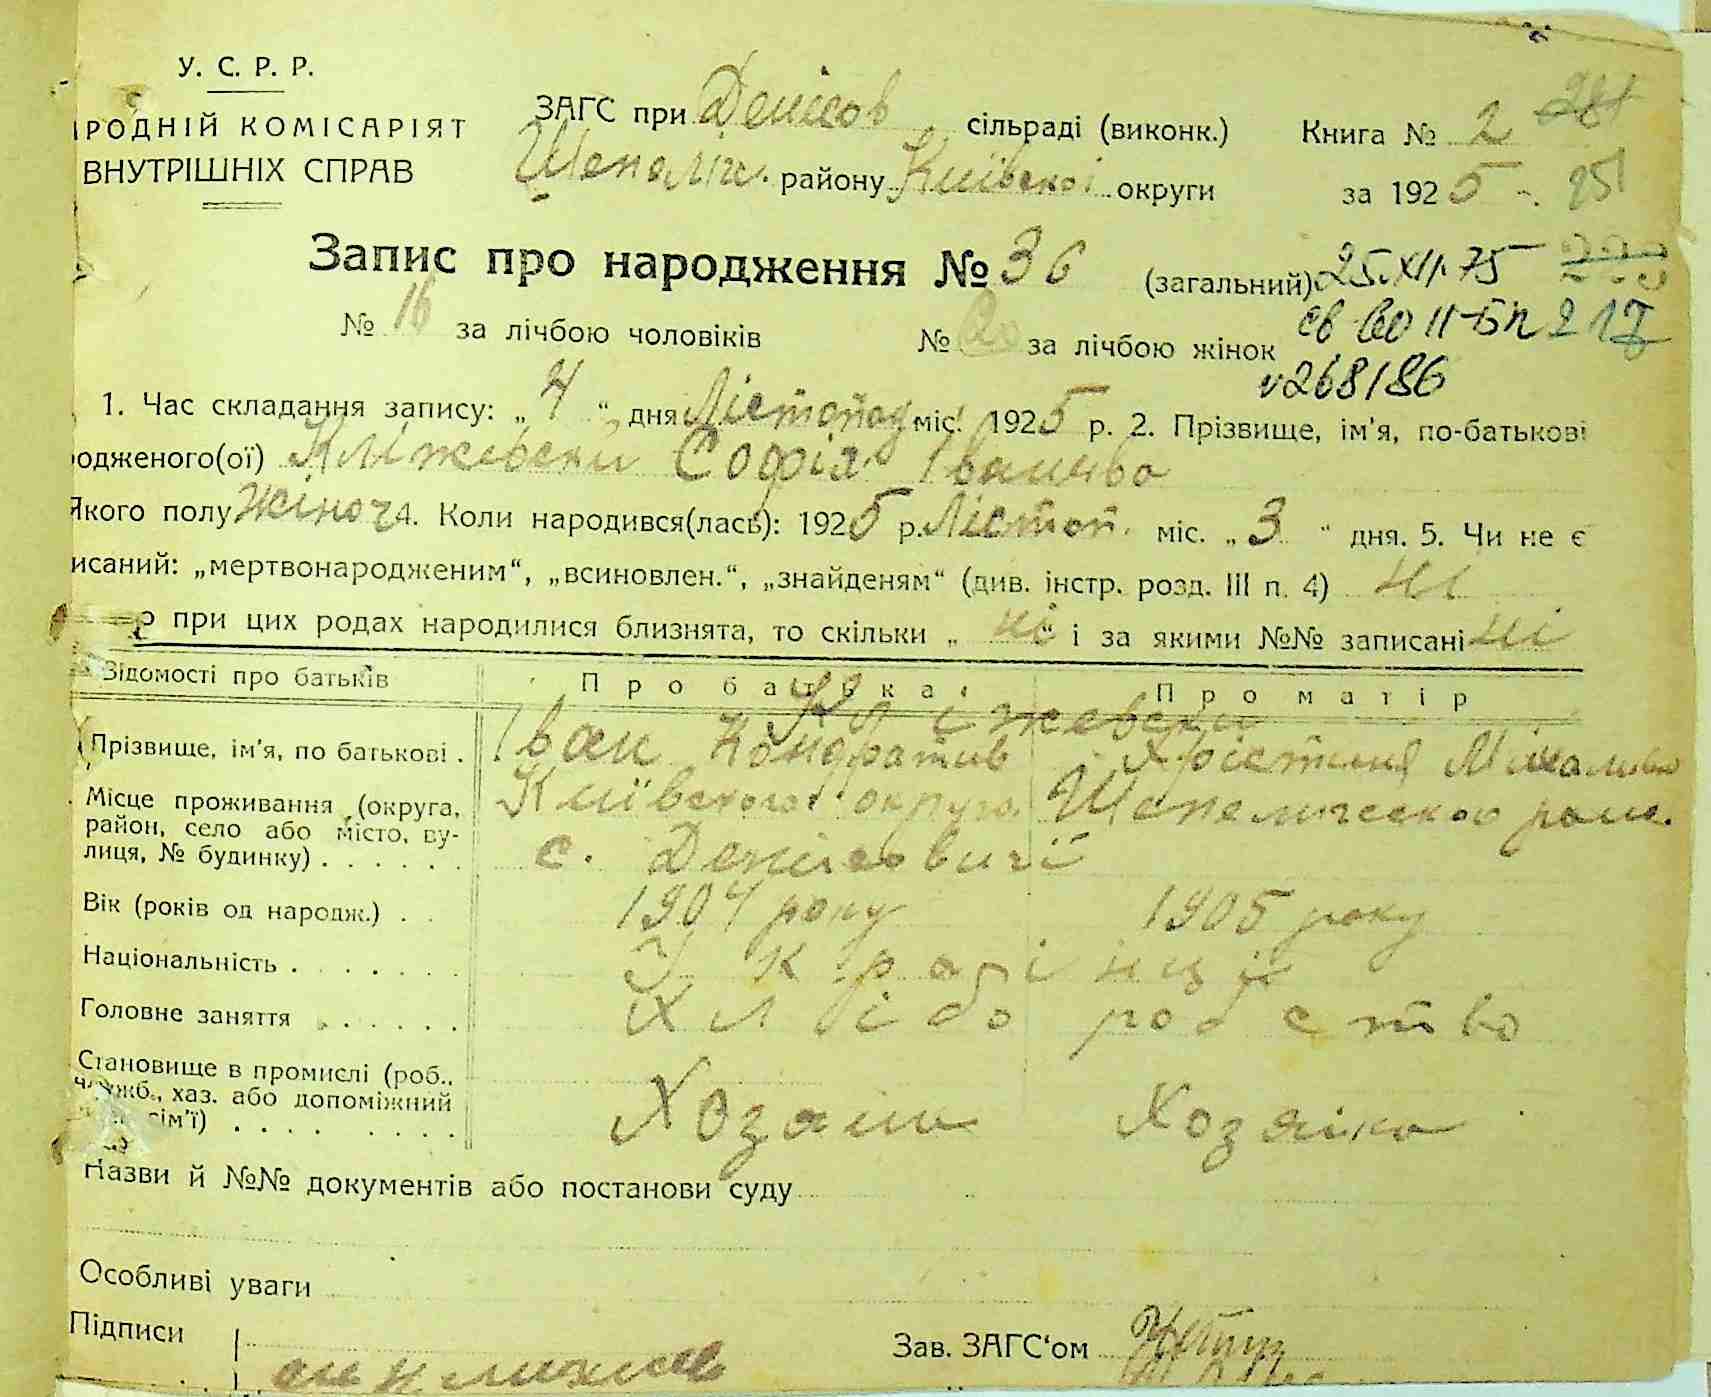 У. С. Р. Р.
РОДНІЙ КОМІСАРІЯТ
ВНУТРІШНІХ СПРАВ
ЗАГС при Денісов сільраді (виконк.)
Шепеліч. району Київської округи
Книга № 2 281
за 1925 25
Запис про народження № 36 (загальний) 25.XII.75
№ 16 за лічбою чоловіків № 20 за лічбою жінок
св-во II-БП 217
№268186
1. Час складання запису: „4“ дня Лістопад міс. 1925 р. 2. Прізвище, ім'я, по-батькові
одженого(ої) Кліжевски Софія Іванівна
Якого полу жіноч 4. Коли народився(лась): 1925 р. Лістоп. міс. „3“ дня. 5. Чи не є
исаний: „мертвонародженим“, „всиновлен.“, „знайденям“ (див. інстр. розд. III п. 4) ні
при цих родах народилися близнята, то скільки „ні“ і за якими №№ записані ні
Відомості про батьків Про батька Про матір
Кліжевски
Прізвище, ім'я, по батькові . Іван Кондратів Хрістиня
Місце проживання (округа, район, село або місто, вулиця, № будинку) . . . . . . Київского округа Шепелическог
с. Денісовичі
Вік (років од народж.) . . 1904 року 1905 року
Національність . . . . . . . Українці
Головне заняття . . . . . . Хліборобство
Становище в промислі (роб.,
службб., хаз. або допоміжний
сім'ї) . . . . . . . . Хозяін Хозяйка
Назви й №№ документів або постанови суду
Особливі уваги
Підписи
Зав. ЗАГС'ом